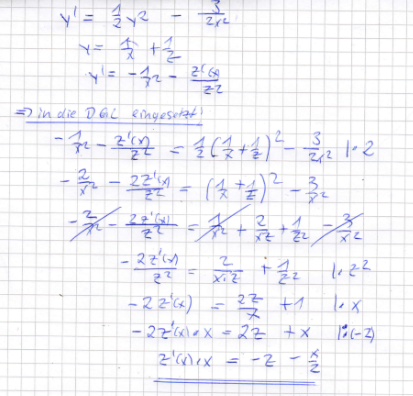 y' = 1/2 y² - 3/2x²
y = 1/x + 1/z
y' = -1/x² - z'(x)/z²
⇒ in die DGL eingesetzt!
-1/x² - z'(x)/z² = 1/2 (1/x + 1/z)² - 3/2x² |·2
-2/x² - 2z'(x)/z² = (1/x + 1/z)² - 3/x²
-2/x² - 2z'(x)/z² = 1/x² + 2/xz + 1/z² - 3/x²
-2z'(x)/z² = 2/x·z + 1/z² |·z²
-2z'(x) = 2z/x + 1 |·x
-2z'(x)·x = 2z + x |:(-2)
z'(x)·x = -z - x/2